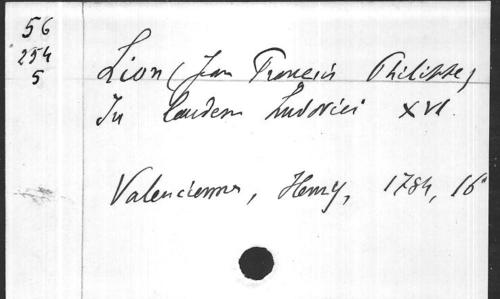 56
254
5
Lion (Jean François Philippe)
In laudem Ludovici XVI.
Valenciennes, Henry, 1784, 16°